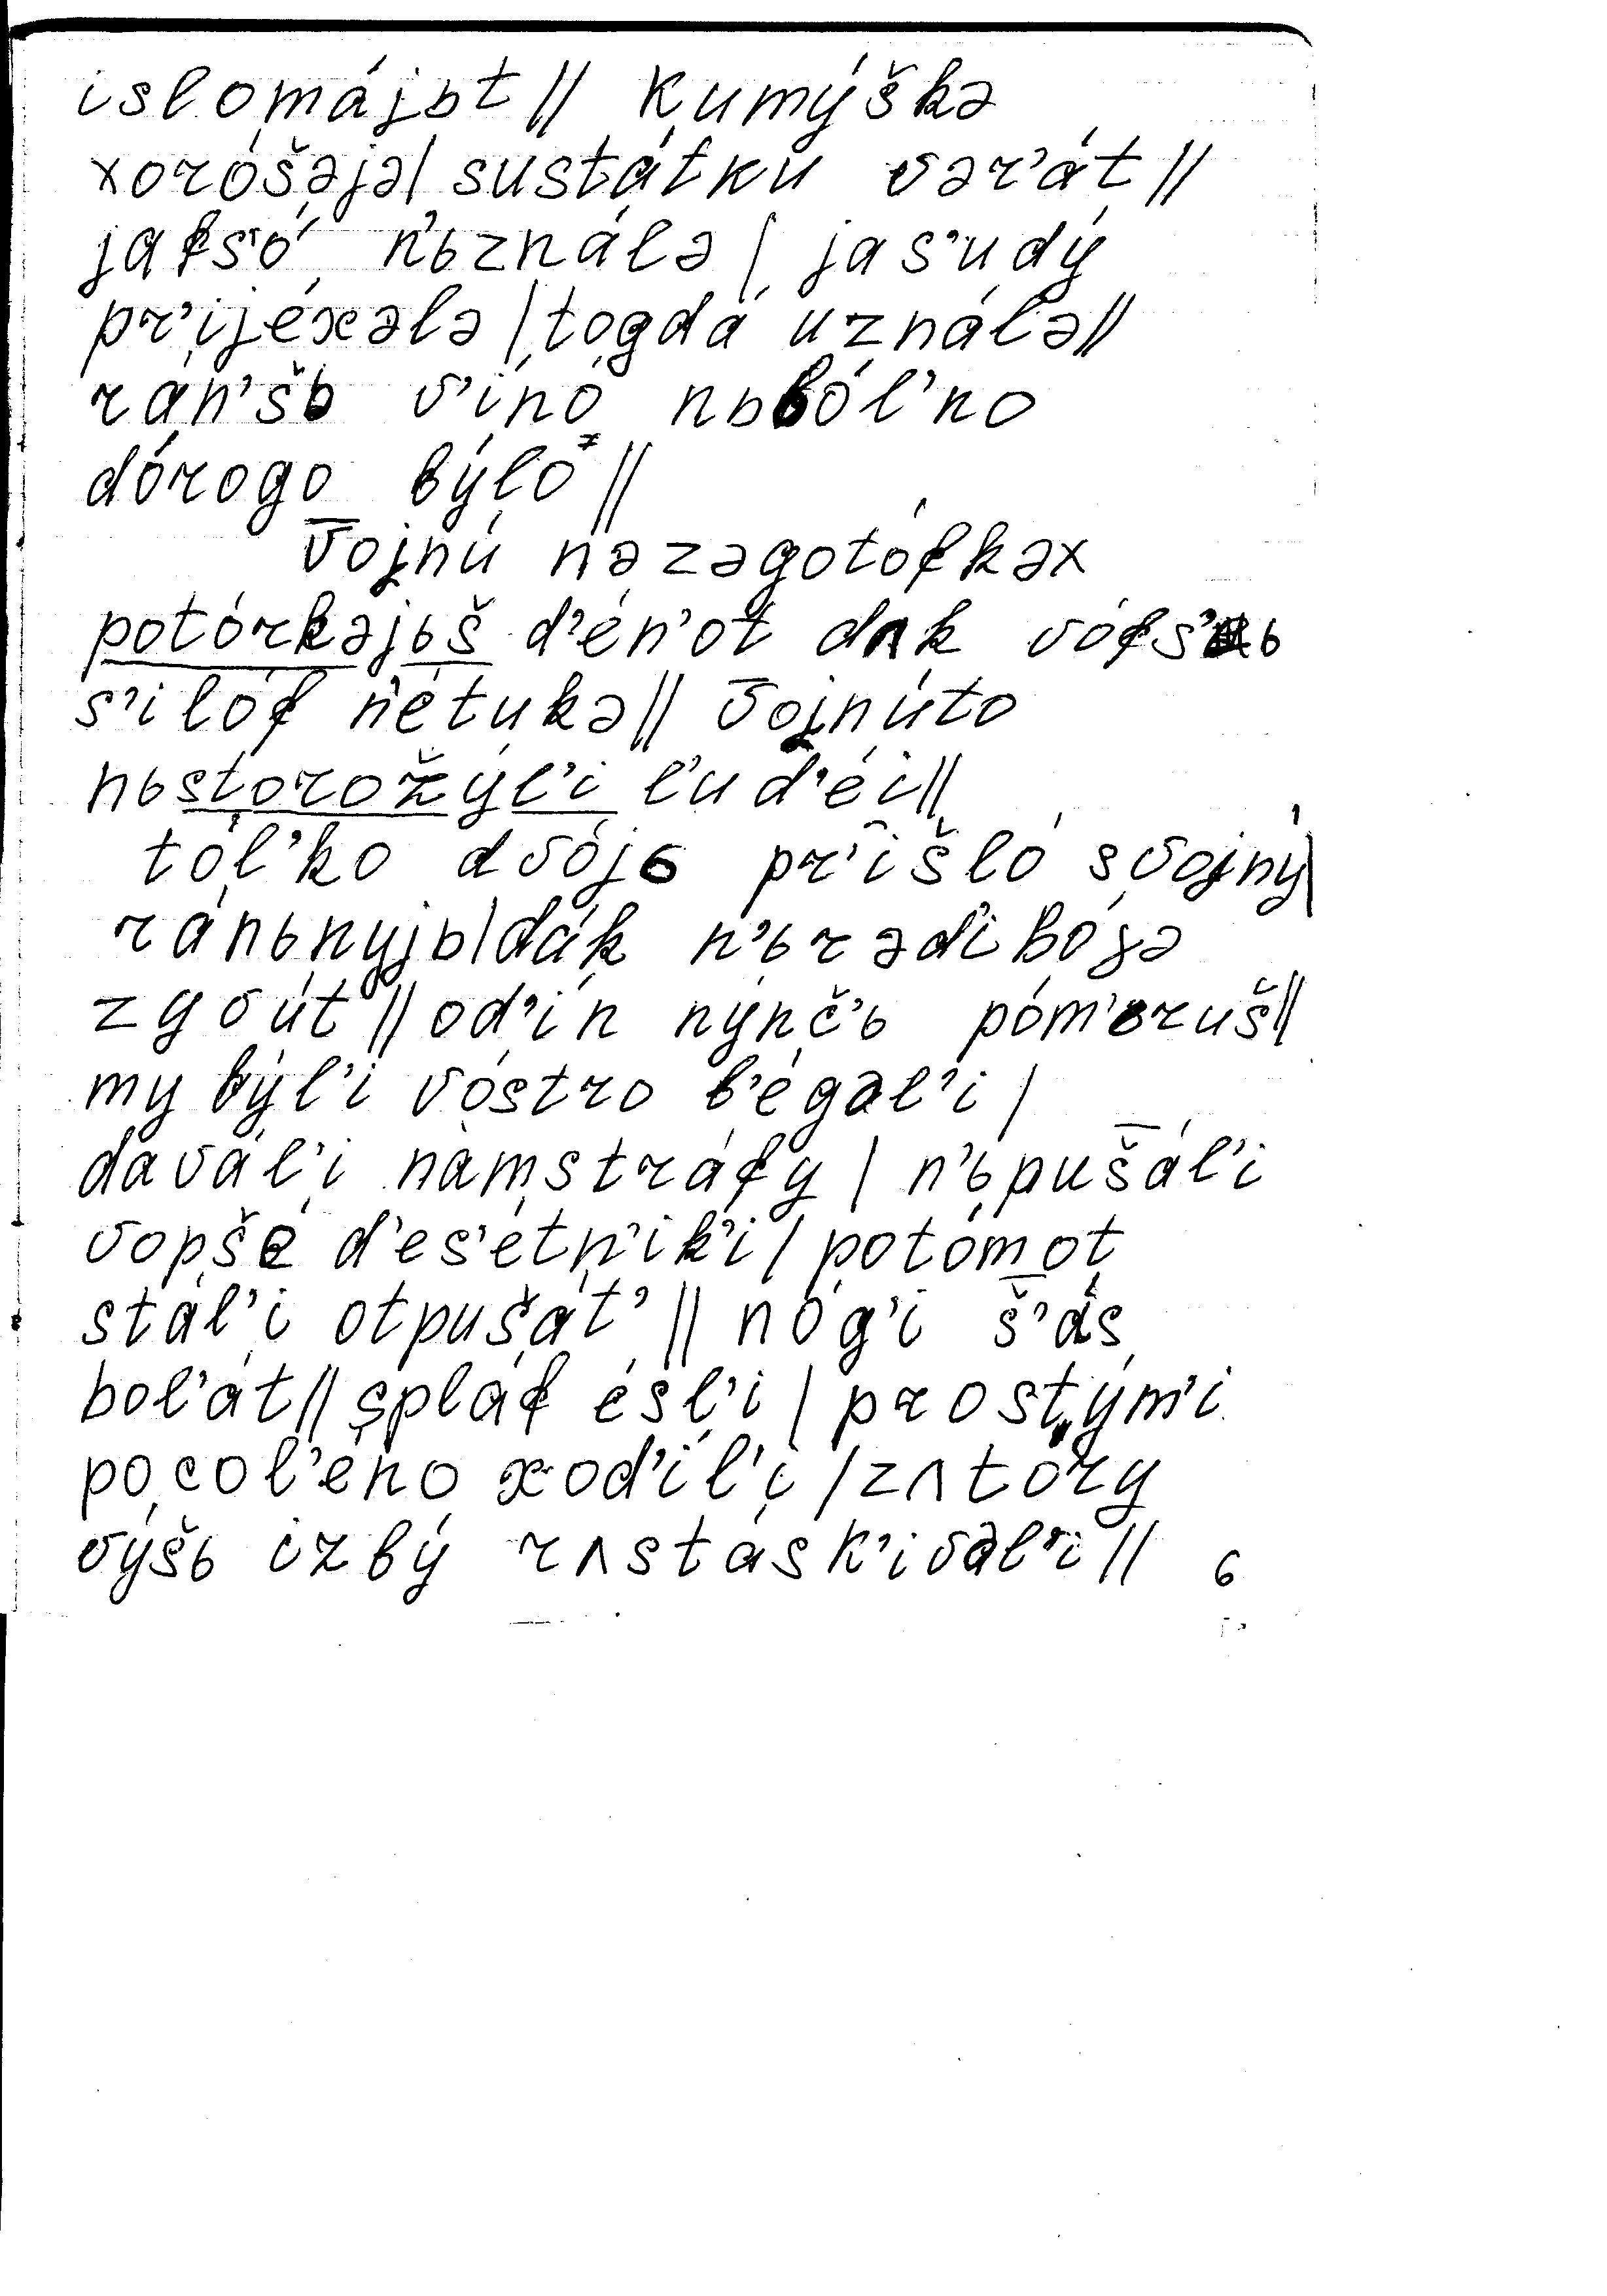 islomájьt || kumýškə
xoróšəjə| sustátku vər’át ||
jafs’ó n’ьználə | jas’udý
pr’ijéxələ | togdá uználə ||
rán’šь v’inó nьból’no
dórogo býlo ||
v̅ojnú nəzəgotófkəx
potórkəjьš d’én’ot dʌk vófs’ь
s’ilóf n’étukə || v̅ojnúto
nьstorožýl’i l’ud’éi ||
tól’ko dvójь pr’išló svojný |
ránьnyjь | dák n’ьrəd’ibóɣə
zyvút || od’ín nýnč’ь póm’eruš ||
my býl’i vóstro b’égəl’i |
davál’i námstráfy | n’ьpuš̅ál’i
vopšé d’es’étn’ik’i | potómot
stál’i otpušát’ || nóg’i š’ás
bol’át || spláf ésl’i | prostým’i
pocol’éno xod’íl’i | zʌtóry
výšь izbý rʌstásk’ivəl’i || 6